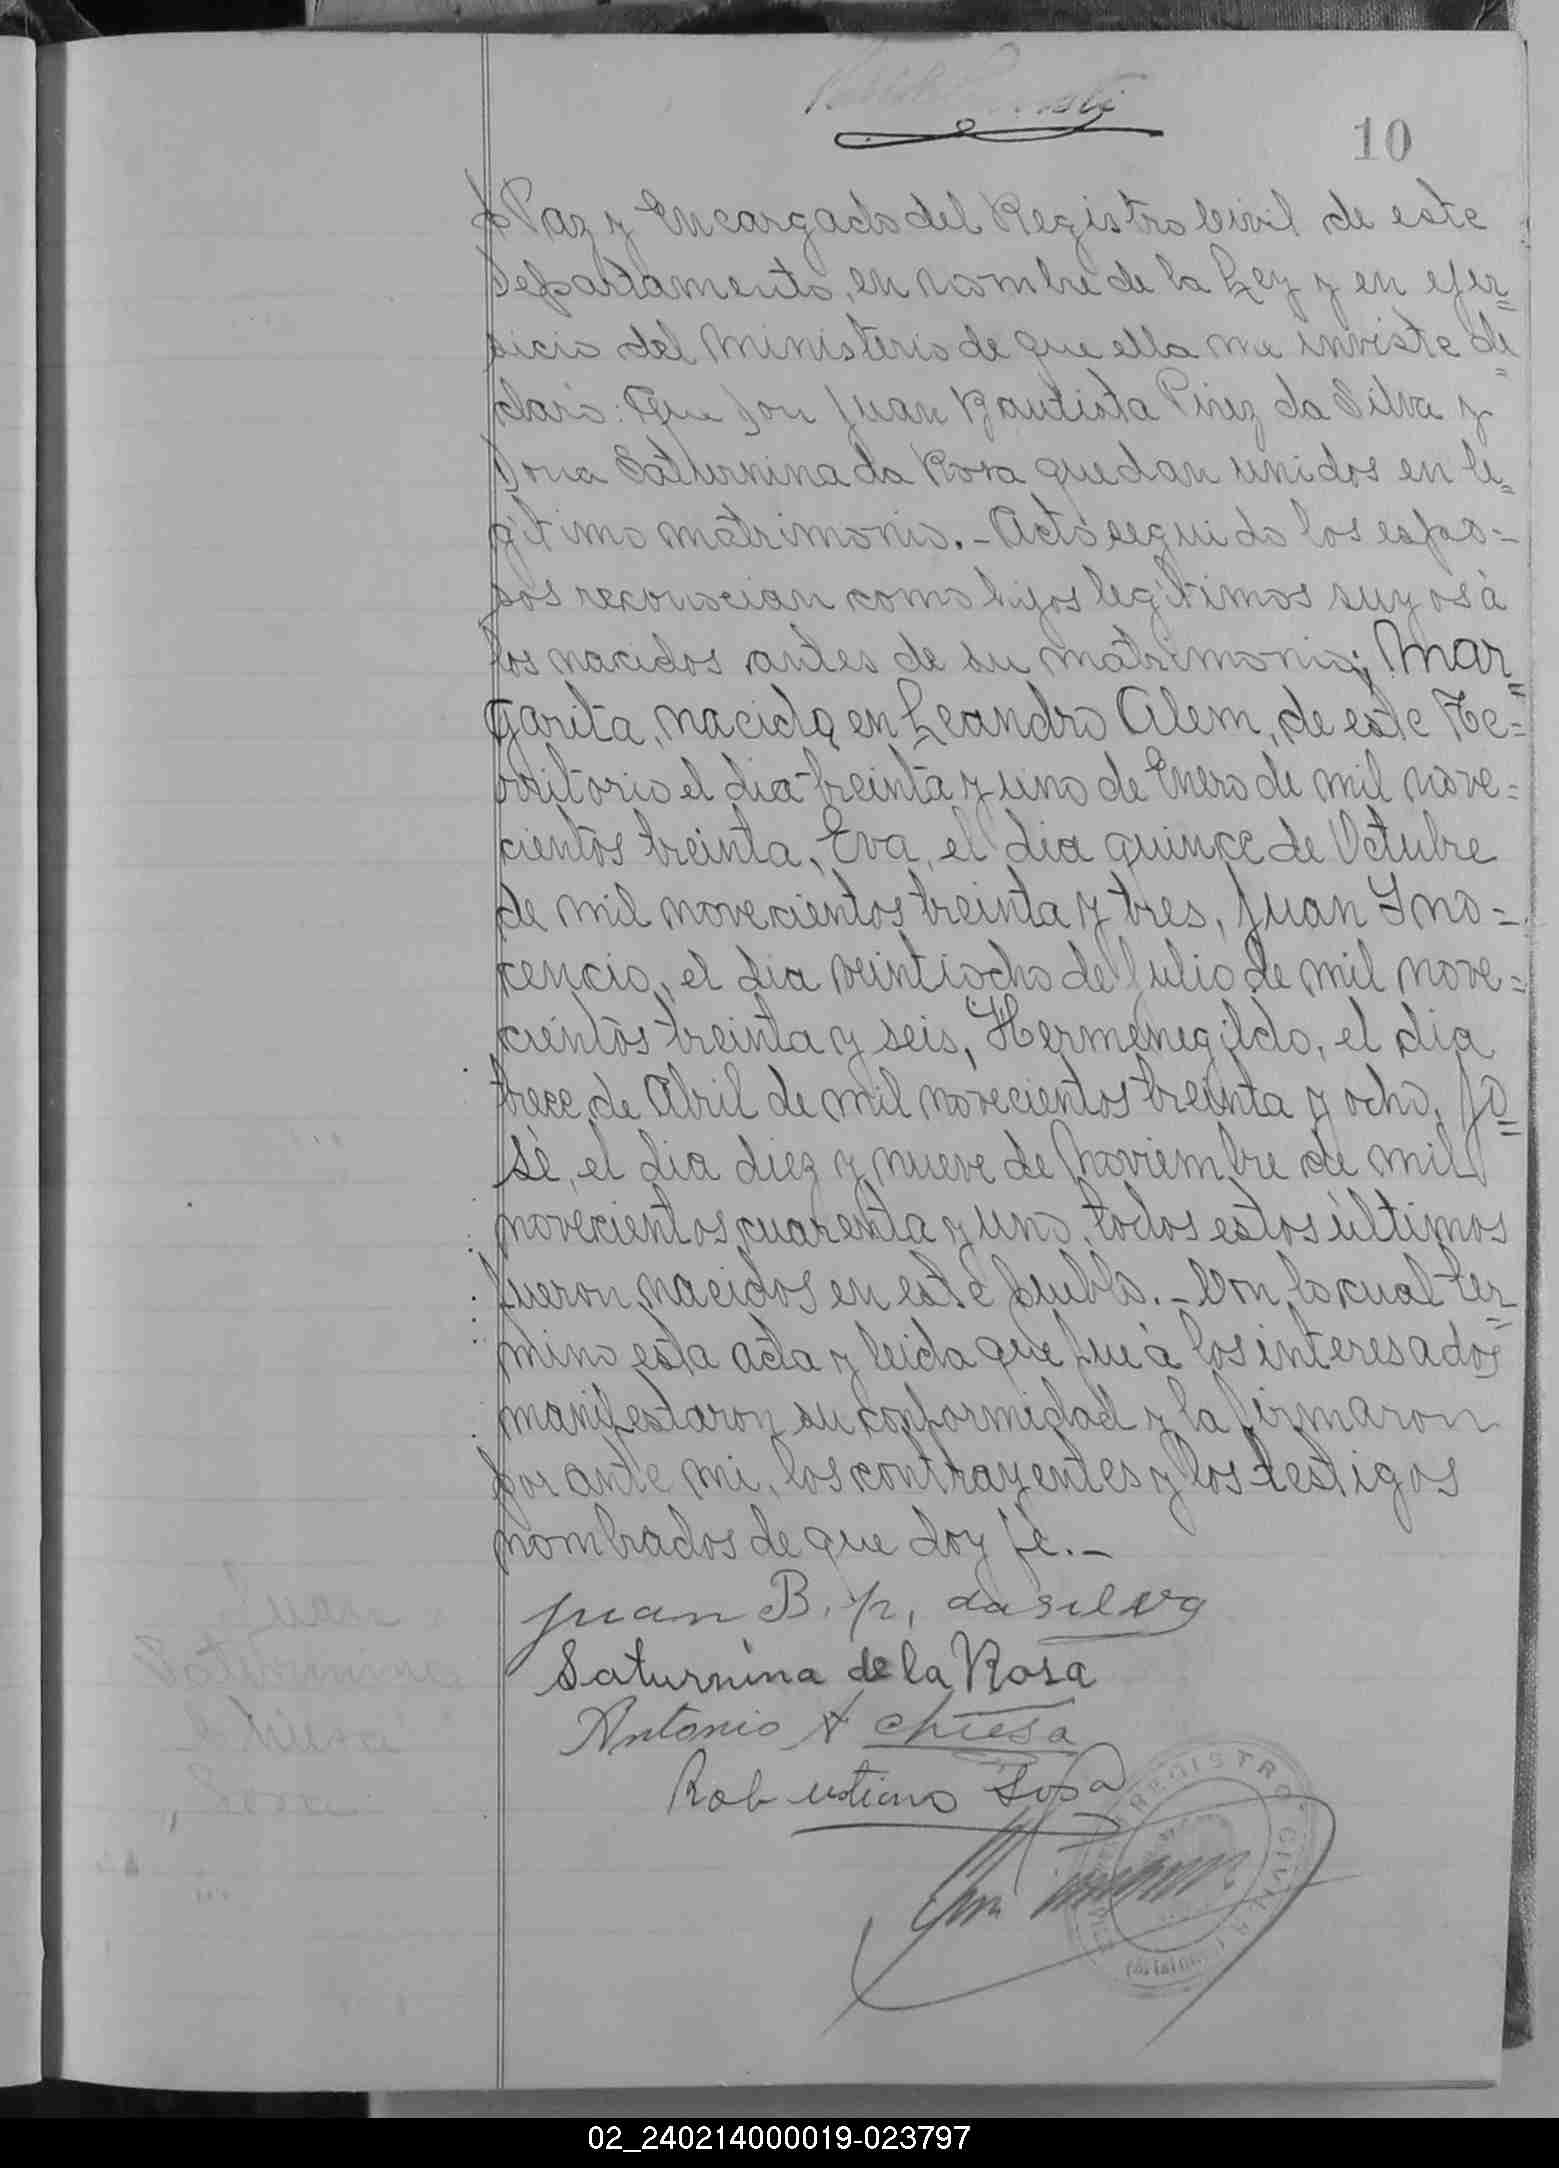 10
Paz y Encargado del Registro Civil de este
Departamento, en nombre de la Ley y en ejer=
sicio del ministerio de que ella me inviste de=
claro: Que Don Juan Bautista Pirez da Silva y
Dona Saturnina da Rosa quedan unidos en le=
gitimo matrimonio.- Acto seguido los espo=
sos reconocian como hijos legitimos suyos á
los nacidos antes de su matrimonio; Mar=
garita, nacida en Leandro Alem, de este Te=
rritorio el dia treinta y uno de Enero de mil nove=
cientos treinta, Eva, el dia quince de Octubre
de mil novecientos treinta y tres, Juan Ino=
cencio, el dia veintiocho de Julio de mil nove=
cientos treinta y seis, Hermenegildo, el dia
trece de Abril de mil novecientos treinta y ocho, Jo=
sé, el dia diez y nueve de Noviembre de mil
novecientos cuarenta y uno, todos estos últimos
fueron nacidos en este pueblo.- Con lo cual ter=
mino esta acta y leida que fue á los interesados
manifestaron su conformidad y la firmaron
por ante mi, los contrayentes y los testigos
nombrados de que doy fé.-
Juan B. p, da silva
Saturnina de la Rosa
Antonio A chiesa
Robustiano Sosa
REGISTRO CIVIL
02_240214000019-023797